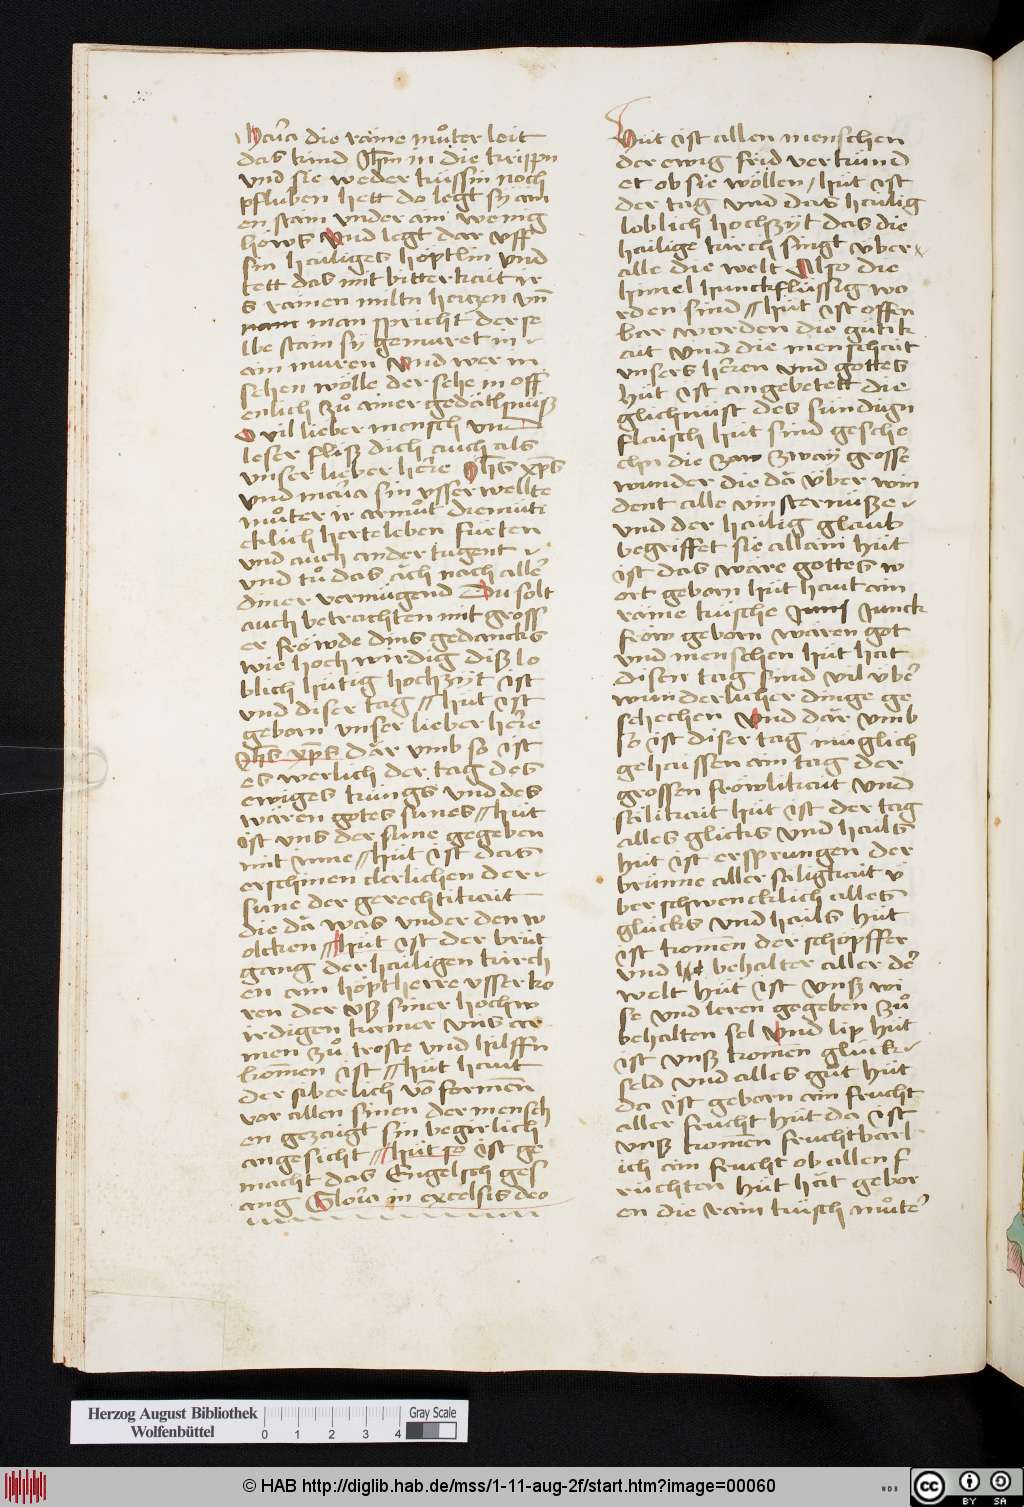 Maria die raine můter leit
das kind Jhm in die krippn
vnd sie weder küssin noch
pfluben hett do legt sy ain
en stain vnder ain wenig
hows Vnd legt dar vff
sin hailiges höptlin vnd
tett das mit bitterkait ir
s rainen miltn hertzen vn̄
man spricht der se
lbe stain sy gemuret in
ain muren Vnd wer in
sehen wölle der sehe in off
enlich zů ainer gedächtnüsz
O vil lieber mensch vnd
leser flisz dich auch als
vnser lieber here Jhs xp̄s
vnd maria sin vsserwellte
můter ir armůt diemüti
cklich herte leben fürten
vnd auch ander tugent
vnd tů das äch nach aller
diner vermügend Du solt
auch betrachten mit gross
er fröwde dins gedancks
wie hoch wirdig disz lo
blich hütig hochzyt ist
vnd diser tag // hüt ist
geborn vnser lieber here
Jhs xp̄s där vmb so ist
es werlich der tag des
ewiges küngs vnd des
wären gotes sunes // hüt
ist vns der sune gegeben
mit inne // hüt ist das
erschinen clerlichen der
sune der gerechtikait
die dä was vnder den w
olcken // hüt ist der brüt
gang der hailigen kirch
en ain höptherre vsser ko
ren der vsz siner hochw
irdigen kamer vns ar
men zů troste vnd hilffn
komen ist // hüt haut
der siberlich vō formen
vor allen sinen der mensch
en gezaigt sin begirlich
angesicht // hüt so ist ge
macht das Engelsch ges
ang Gloria in excelsis deo
Hüt ist allen menschen
der ewig frid verkünd
et ob sie wöllen / hüt ist
der tag vnd das hailig
loblich hochzyt das die
hailige kirch singt vber
alle die welt Also die
himel hunckflüssig wo
rden sind // hüt ist offen
bar worden die gütik
ait vnd die menschait
vnsers herren vnd gottes
hüt ist angebetett die
glichnust des sündign
flaisch hüt sind gesche
chn die zwaÿ grosse
wunder die dä vber win
dent alle vinsternüsze
vnd der hailig glaub
begriffet sie allain hüt
ist das ware gottes w
ort geborn hüt haut ain
raine küsche Junck
frow geborn wären got
vnd menschen hüt hät
disen tag sind vil vber
wunderlicher dinge ge
schechen Vnd där vmb
so ist diser tag müglich
gehaissen ain tag der
grossen fröwlikait vnd
sälikait hüt ist der tag
alles glücks vnd hails
hüt ist ersprungen der
brünne aller säligkait v
ber schwencklich alles
glücks vnd hails hüt
ist komen der schöpffer
vnd behalter aller der
welt hüt ist vnsz wi
se vnd leren gegeben zů
behalten sel vnd lip hüt
ist vnsz komen glück
seld vnd alles gůt hüt
da ist geborn ain frucht
aller frucht hüt da ist
vnsz komen fruchtbarl
ich ain frucht ob allen f
rüchten hüt hät gebor
en die rain küsch můter
Herzog August Bibliothek
Wolfenbüttel
0 1 2 3 4
Gray Scale
© HAB http://diglib.hab.de/mss/1-11-aug-2f/start.htm?image=00060
WDB
cc BY SA